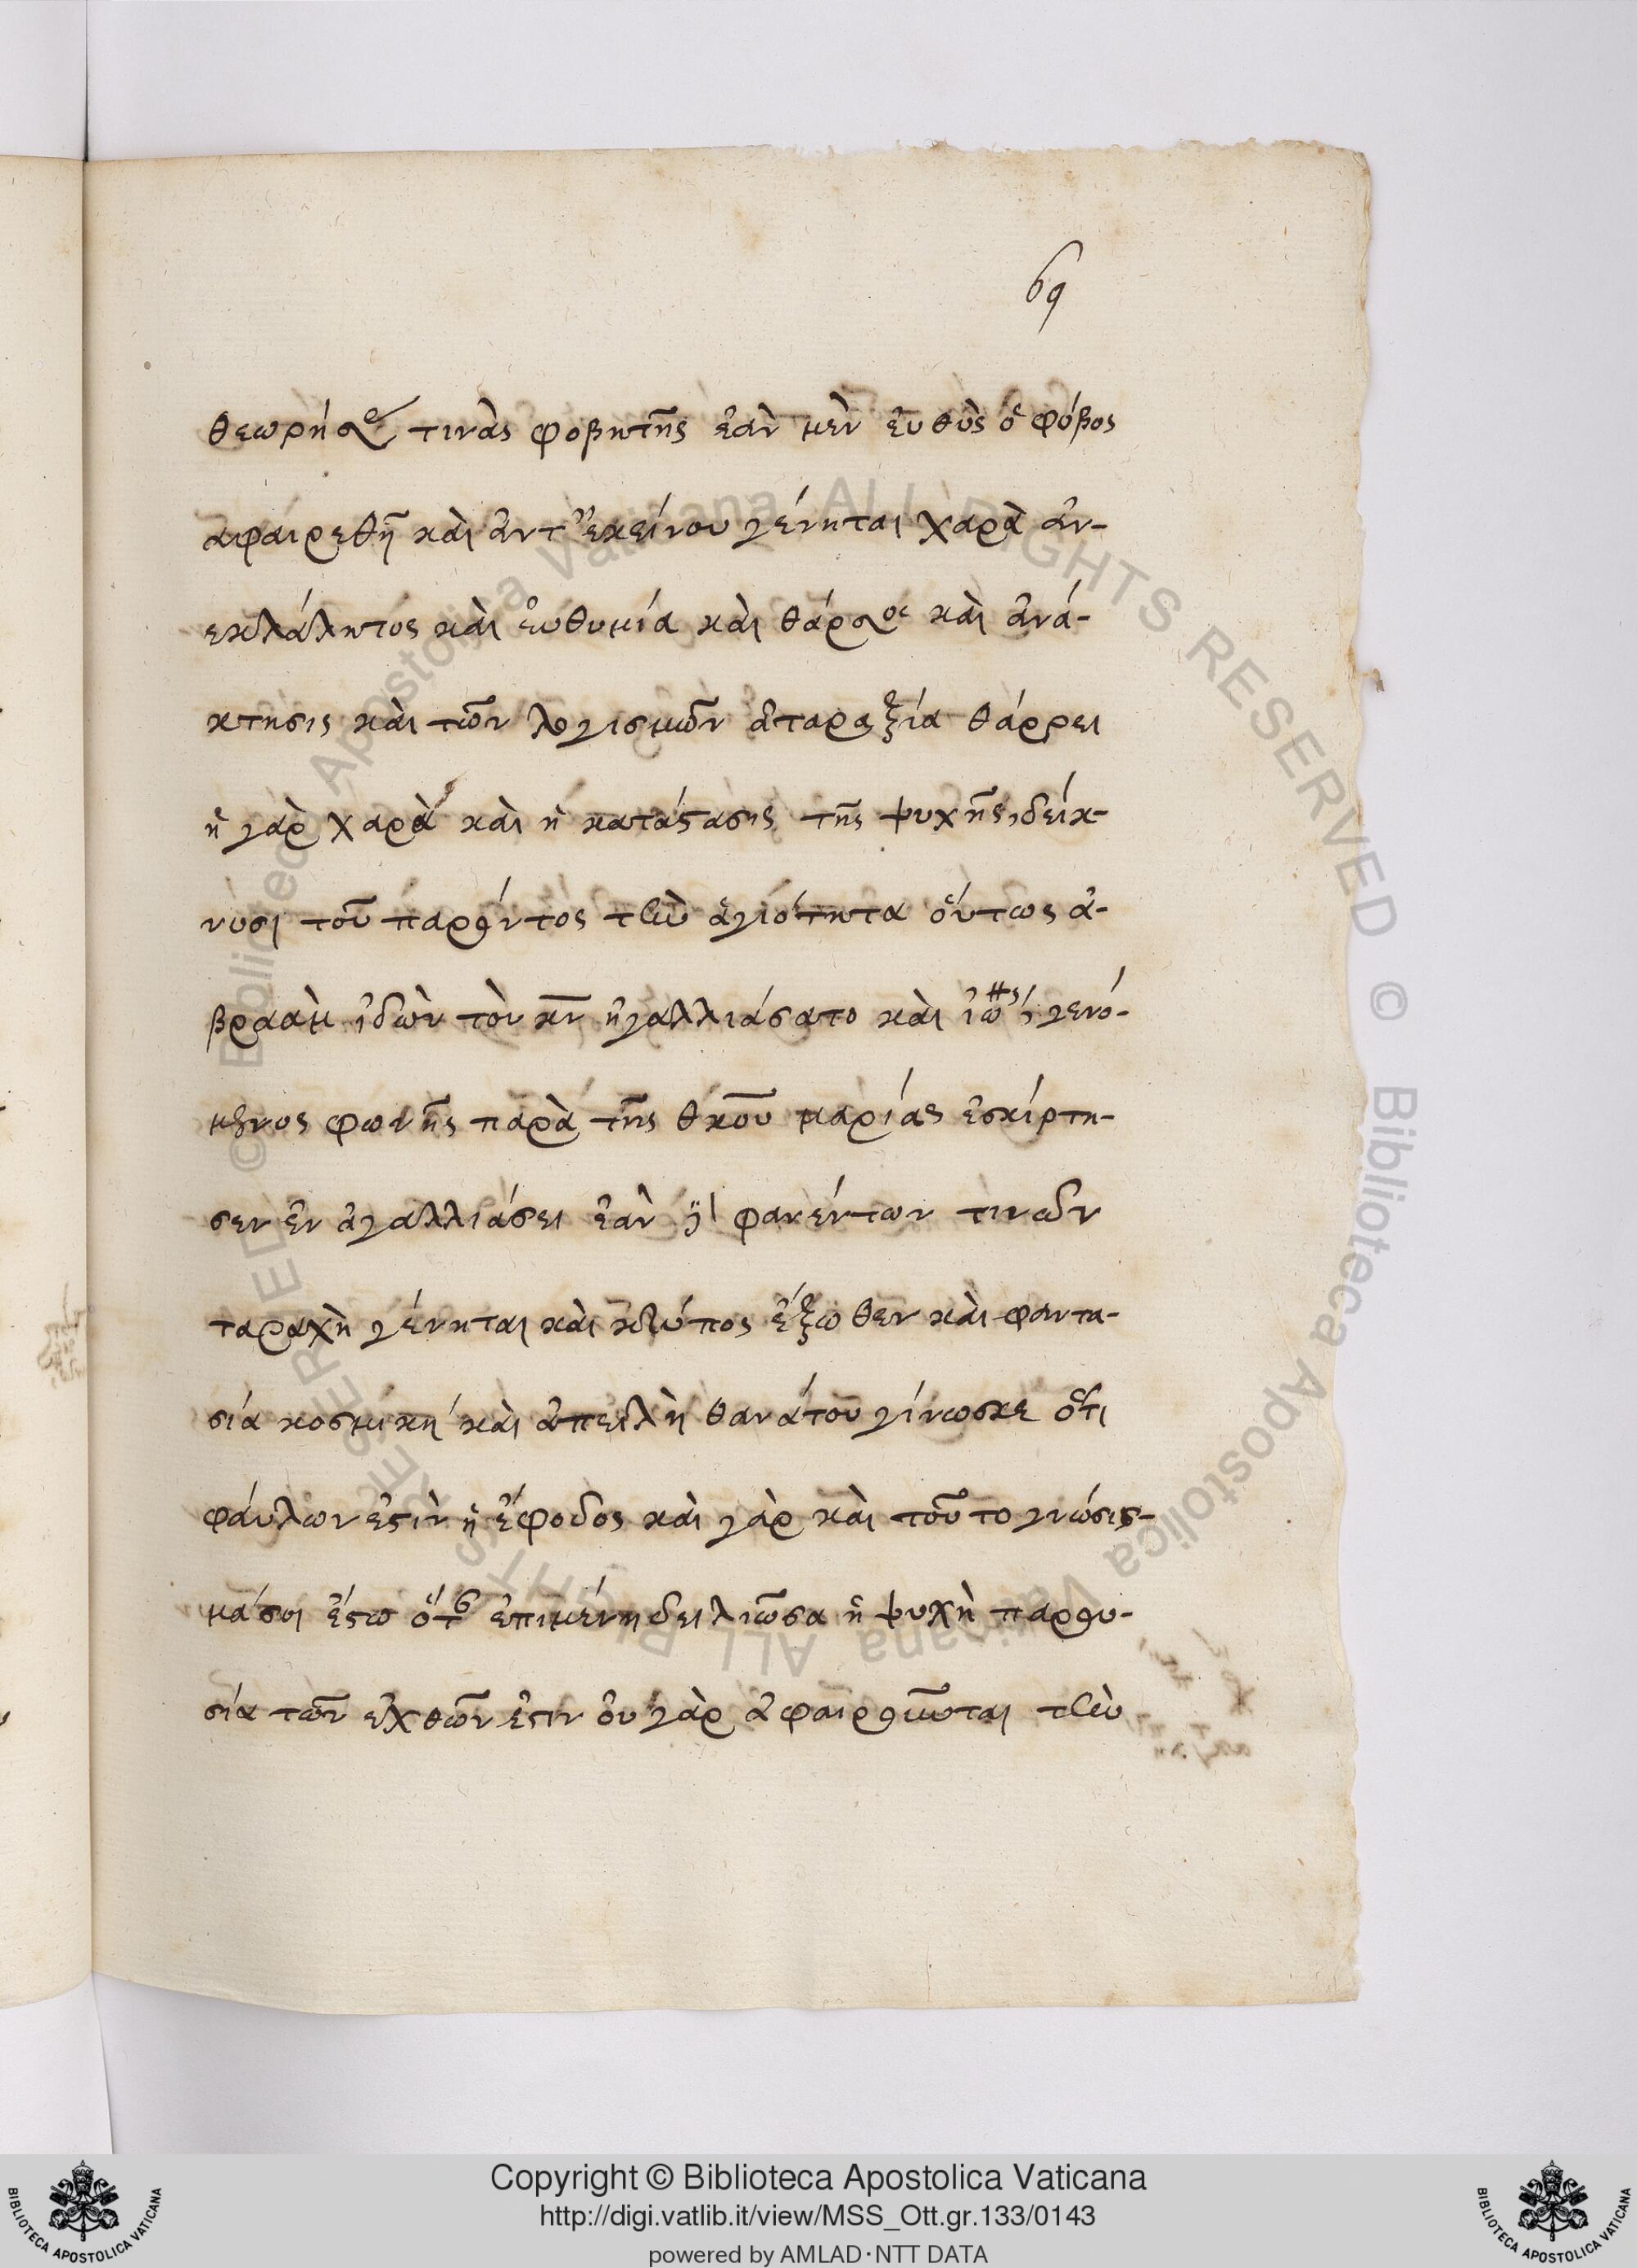 69
θεωρήσε τινὰς φοβητῆς ἐὰν μὲν ἐυθὺς ὁ φόβος
αφαιρεθῆ καὶ ἀντ' ἐκείνου γένηται χαρὰ ἀν-
εκλάλητος καὶ ἐυθυμία καὶ θάρσος καὶ ἀνά-
κτησις καὶ τῶν λογισμῶν ἀταραξία θάρρει
ἡ γὰρ χαρὰ καὶ ἡ κατάστασις τῆς ψυχῆς, δείκ-
νυσι τοῦ παρόντος τὴν ἁγιότητα ὁύτως ἀ-
βραὰμ ἰδὼν τὸν κν ἠγαλλιάσατο καὶ ἰω γενό-
μενος φωνῆς παρὰ τῆς θκου μαρίας ἐσκίρτη-
σεν ἐν ἀγαλλιάσει ἐὰν φανέντων τινῶν
ταραχὴ γένηται καὶ κτύπος ἔξωθεν καὶ φαντα-
σία κοσμικὴ καὶ ἀπειλὴ θανάτου γίνωσκε ὅτι
φάυλων ἐστὶν ἡ ἔφοδος καὶ γὰρ καὶ τοῦτο γνώσις-
μά σοι ἔστω ὅτ ἐπιμένη δειλιῶσα ἡ ψυχὴ παρου-
σία τῶν ἐχθῶν ἐστιν ὀυ γὰρ ἀφαιροῦνται τὴν
Copyright © Biblioteca Apostolica Vaticana
http://digi.vatlib.it/view/MSS_Ott.gr.133/0143
powered by AMLAD·NTT DATA
BIBLIOTECA APOSTOLICA VATICANA
BIBLIOTECA APOSTOLICA VATICANA
© Biblioteca Apostolica Vaticana ALL RIGHTS RESERVED © Biblioteca Apostolica Vaticana ALL RIGHTS RESERVED